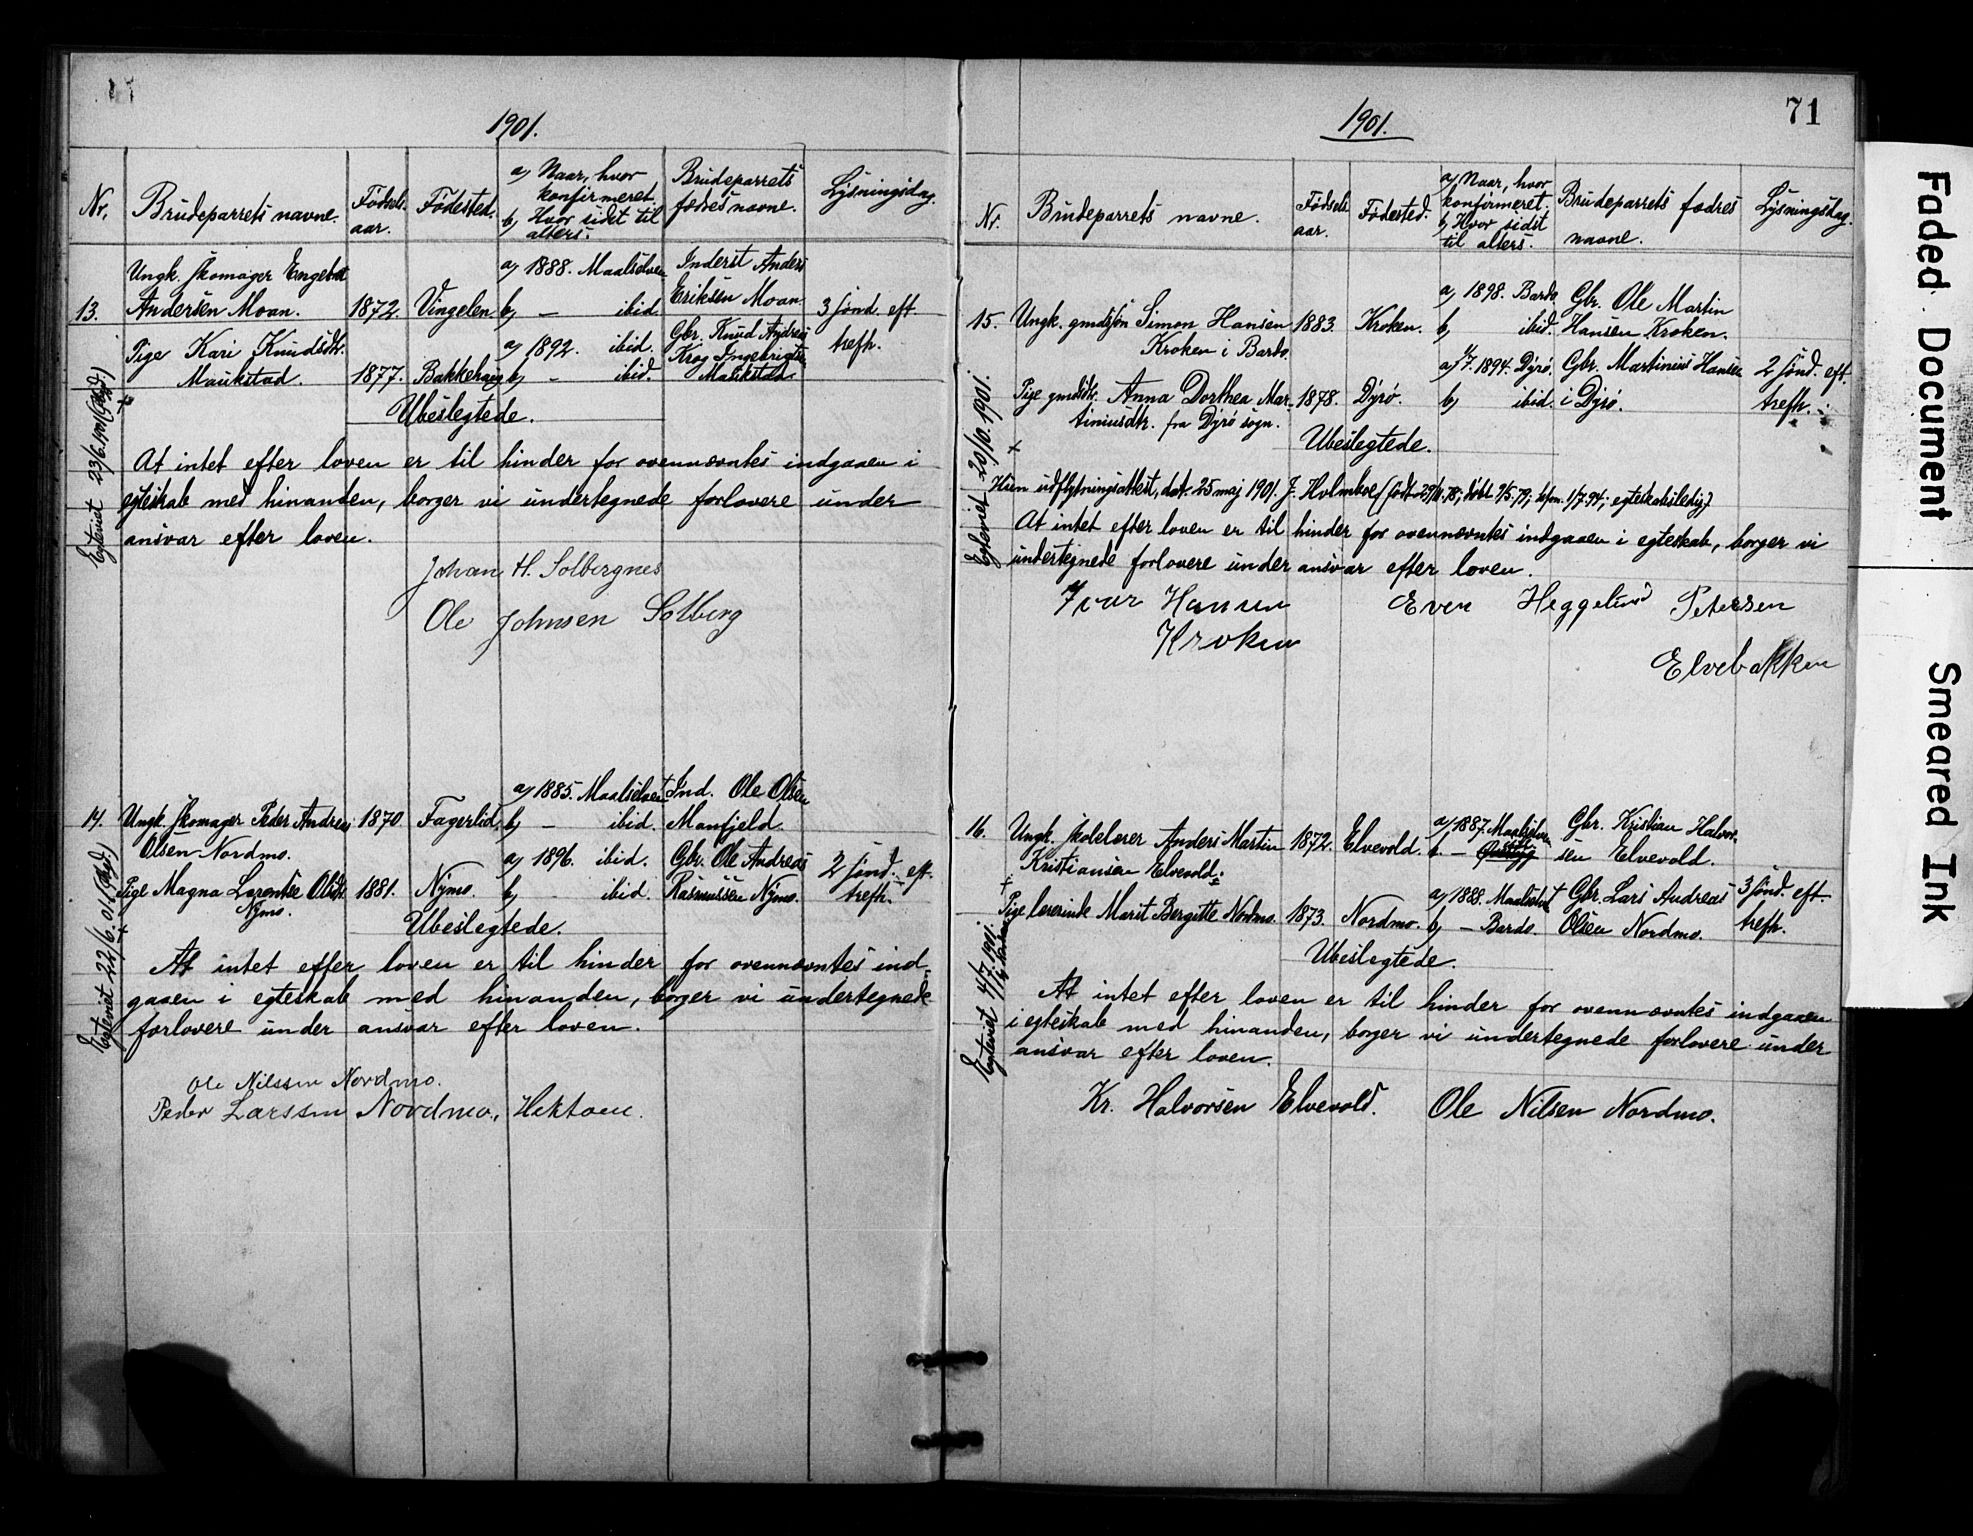 1901.
Nr.
Brudeparrets navne.
Fødsels-
aar.
Fødested.
a) Naar, hvor
konfirmeret.
b) Hvor sidst til
alters.
Brudeparrets
fædres navne.
Lysningsdag.
Ungk. skomager Engebret
13. Andersen Moan. 1872. Vingelen
a) 1888. Maalselven
b) — ibid.
Inderst Anders
Eriksen Moan.
Pige Kari Knudsdtr.
Maukstad. 1877. Bakkehaug
a) 1892. ibid.
b) — ibid.
Gbr. Knud Andreas
Krog Ingebrigtsen
Maukstad.
3 sønd. eft.
trefh.
Ubeslegtede.
Egteviet 23/6.1901
At intet efter loven er til hinder for ovennævntes indgaaen i
egteskab med hinanden, borger vi undertegnede forlovere under
ansvar efter loven.
Johan H. Solbergnes
Ole Johnsen Solberg
14. Ungk. skomager Peder Andreas
Olsen Nordmo. 1870 Fagerlid.
a) 1885. Maalselven
b) — ibid.
Ind. Ole Olsen
Manfjeld.
Pige Magna Lorentse Olsdtr.
Nymo. 1881. Nymo.
a) 1896. ibid.
b) — ibid.
Gbr. Ole Andreas
Rasmussen Nymo.
2 sønd. eft.
trefh.
Ubeslegtede.
Egteviet 22/6.01
At intet efter loven er til hinder for ovennævntes ind-
gaaen i egteskab med hinanden, borger vi undertegnede
forlovere under ansvar efter loven.
Ole Nilssen Nordmo.
Peder Larssen Nordmo, Hektoen.
71
1901.
Nr.
Brudeparrets navne.
Fødsels
aar.
Fødested.
a) Naar, hvor
konfirmeret.
b) Hvor sidst
til alters.
Brudeparrets fædres
navne.
Lysningsdag.
15. Ungk. gmdsøn Simon Hansen
Kroken i Bardo. 1883. Kroken.
a) 1898. Bardo
b) ibid.
Gbr. Ole Martin
Hansen Kroken.
Pige gmddtr. Anna Dorthea Mar-
tiniusdtr. fra Dyrø sogn. 1878. Dyrø.
a) 1/7. 1894. Dyrø.
b) ibid.
Gbr. Martinius Hansen
i Dyrø.
2 sønd. eft.
trefh.
Ubeslegtede.
Egteviet 20/10.1901.
Hun udflytningsattest, dat. 25 maj 1901. J. Holmboe (født 29/11.78; døbt 4/5.79; kofm. 1/7.94; egteskabsledig)
At intet efter loven er til hinder for ovennævntes indgaaen i egteskab, borger vi
undertegnede forlovere under ansvar efter loven.
Ivar Hansen
Kroken
Even Heggelund Petersen
Elvebakken
16. Ungk. skolelærer Anders Martin
Kristiansen Elvevold. 1872. Elvevold.
a) 1887. Maalselven
b —
Gbr. Kristian Halvor-
sen Elvevold.
Pige lærerinde Marit Bergitte Nordmo. 1873. Nordmo.
a) 1888. Maalselv
b) — Bardo.
Gbr. Lars Andreas
Olsen Nordmo.
3 sønd. eft.
trefh.
Ubeslegtede.
Egteviet 4/7.1901.
At intet efter loven er til hinder for ovennævntes indgaaen
i egteskab med hinanden, borger vi undertegnede forlovere under
ansvar efter loven.
Kr. Halvorsen Elvevold. Ole Nilsen Nordmo.
Faded Document
Smeared Ink